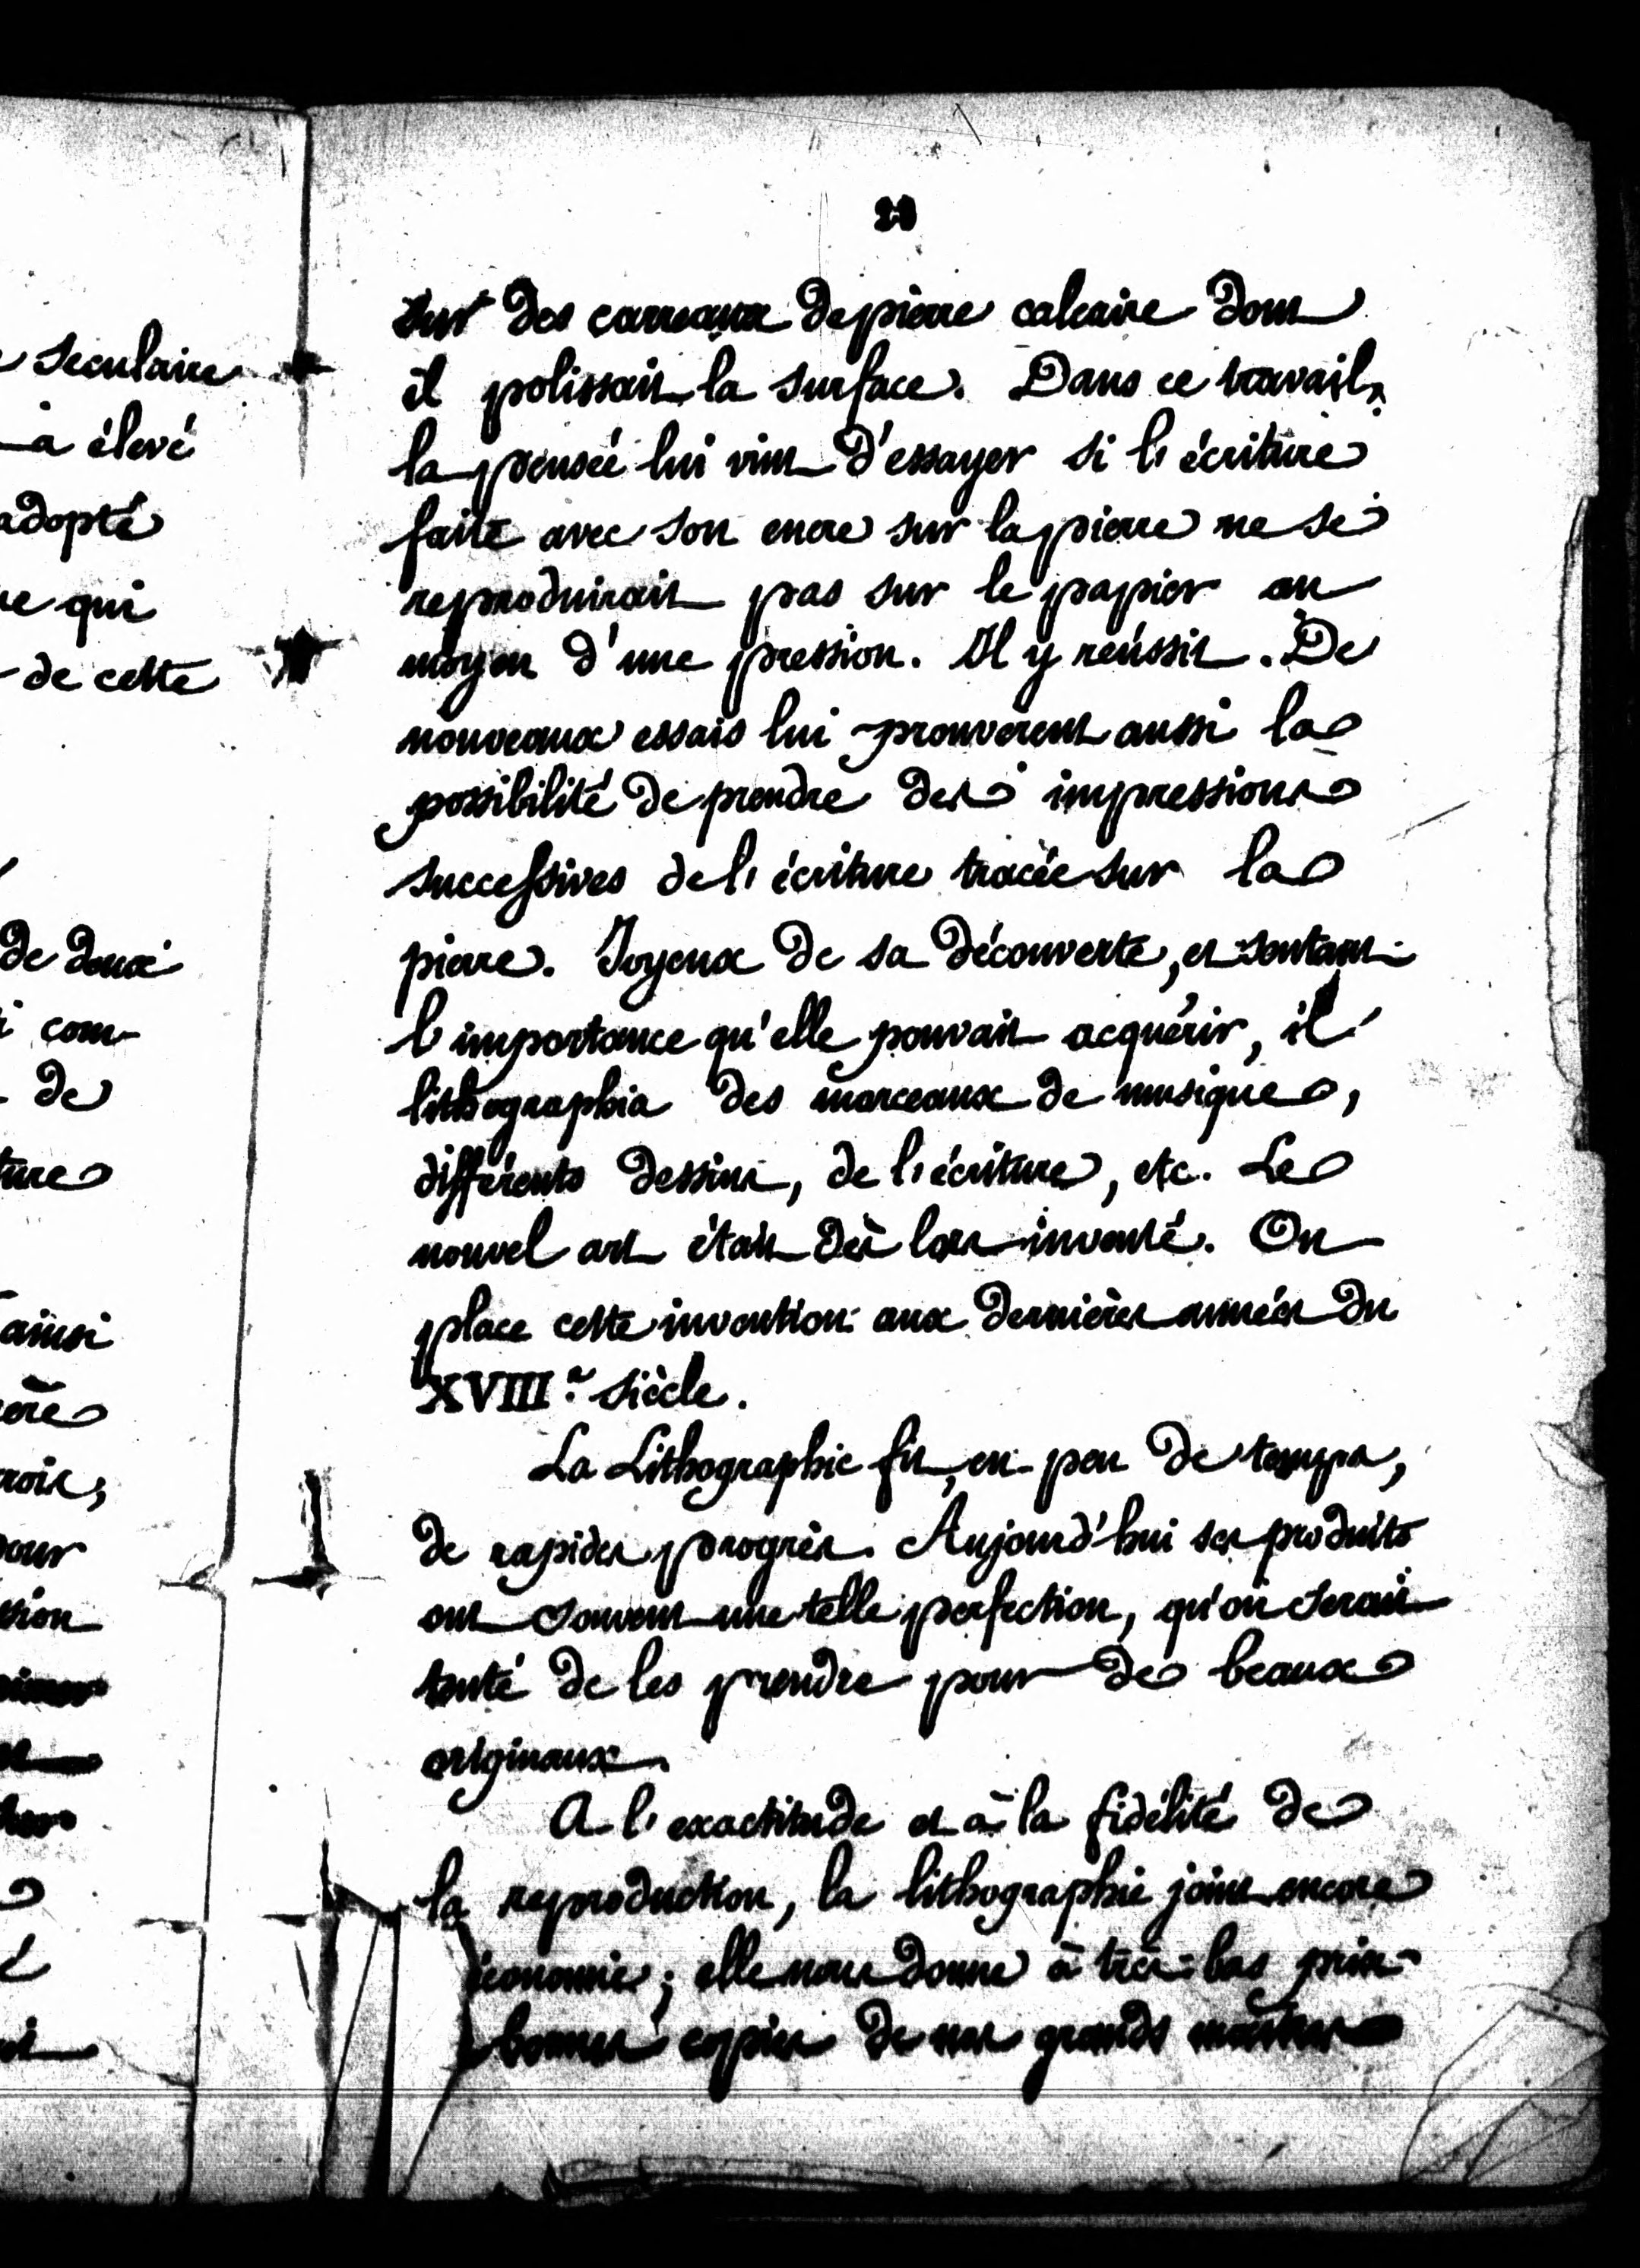 seculaire
a élevé
adopté
qui
de cette
de deux
com-
de
ainsi
sur des carreaux de pierre calcaire dont
il polissait la surface. Dans ce travail,
la pensée lui vint d'essayer si l'écriture
faite avec son encre sur la pierre ne se
reproduirait pas sur le papier au
moyen d'une pression. Il y réussit. De
nouveaux essais lui prouvèrent aussi la
possibilité de prendre des impressions
successives de l'écriture tracée sur la
pierre. Joyeux de sa découverte, et sentant
l'importance qu'elle pouvait acquérir, il
lithographia des morceaux de musique,
différents dessins, de l'écriture, etc. Le
nouvel art était dès lors inventé. On
place cette invention aux dernières années du
XVIII.e siècle.
La Lithographie fit, en peu de temps,
de rapides progrès. Aujourd'hui ses produits
ont souvent une telle perfection, qu'on serait
tenté de les prendre pour de beaux
originaux.
A l'exactitude et à la fidélité de
la reproduction, la lithographie joint encore
économie; elle nous donne à très-bas prix
bonnes copies de nos grands maîtres